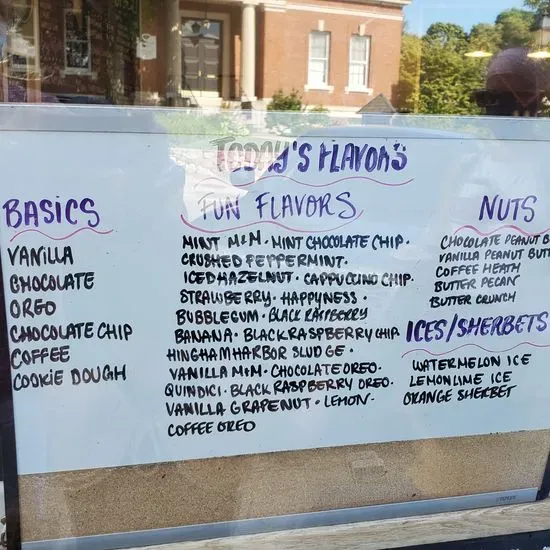 TODAY'S FLAVORS
BASICS
VANILLA
CHOCOLATE
OREO
CHOCOLATE CHIP
COFFEE
COOKIE DOUGH
FUN FLAVORS
MINT M&M · MINT CHOCOLATE CHIP ·
CRUSHED PEPPERMINT ·
ICED HAZELNUT · CAPPUCCINO CHIP ·
STRAWBERRY · HAPPYNESS ·
BUBBLEGUM · BLACK RASPBERRY
BANANA · BLACK RASPBERRY CHIP
HINGHAM HARBOR SLUDGE ·
VANILLA M&M · CHOCOLATE OREO ·
QUINDICI · BLACK RASPBERRY OREO ·
VANILLA GRAPENUT · LEMON ·
COFFEE OREO
NUTS
CHOCOLATE PEANUT B
VANILLA PEANUT BUTT
COFFEE HEATH
BUTTER PECAN
BUTTER CRUNCH
ICES/SHERBETS
WATERMELON ICE
LEMONLIME ICE
ORANGE SHERBET